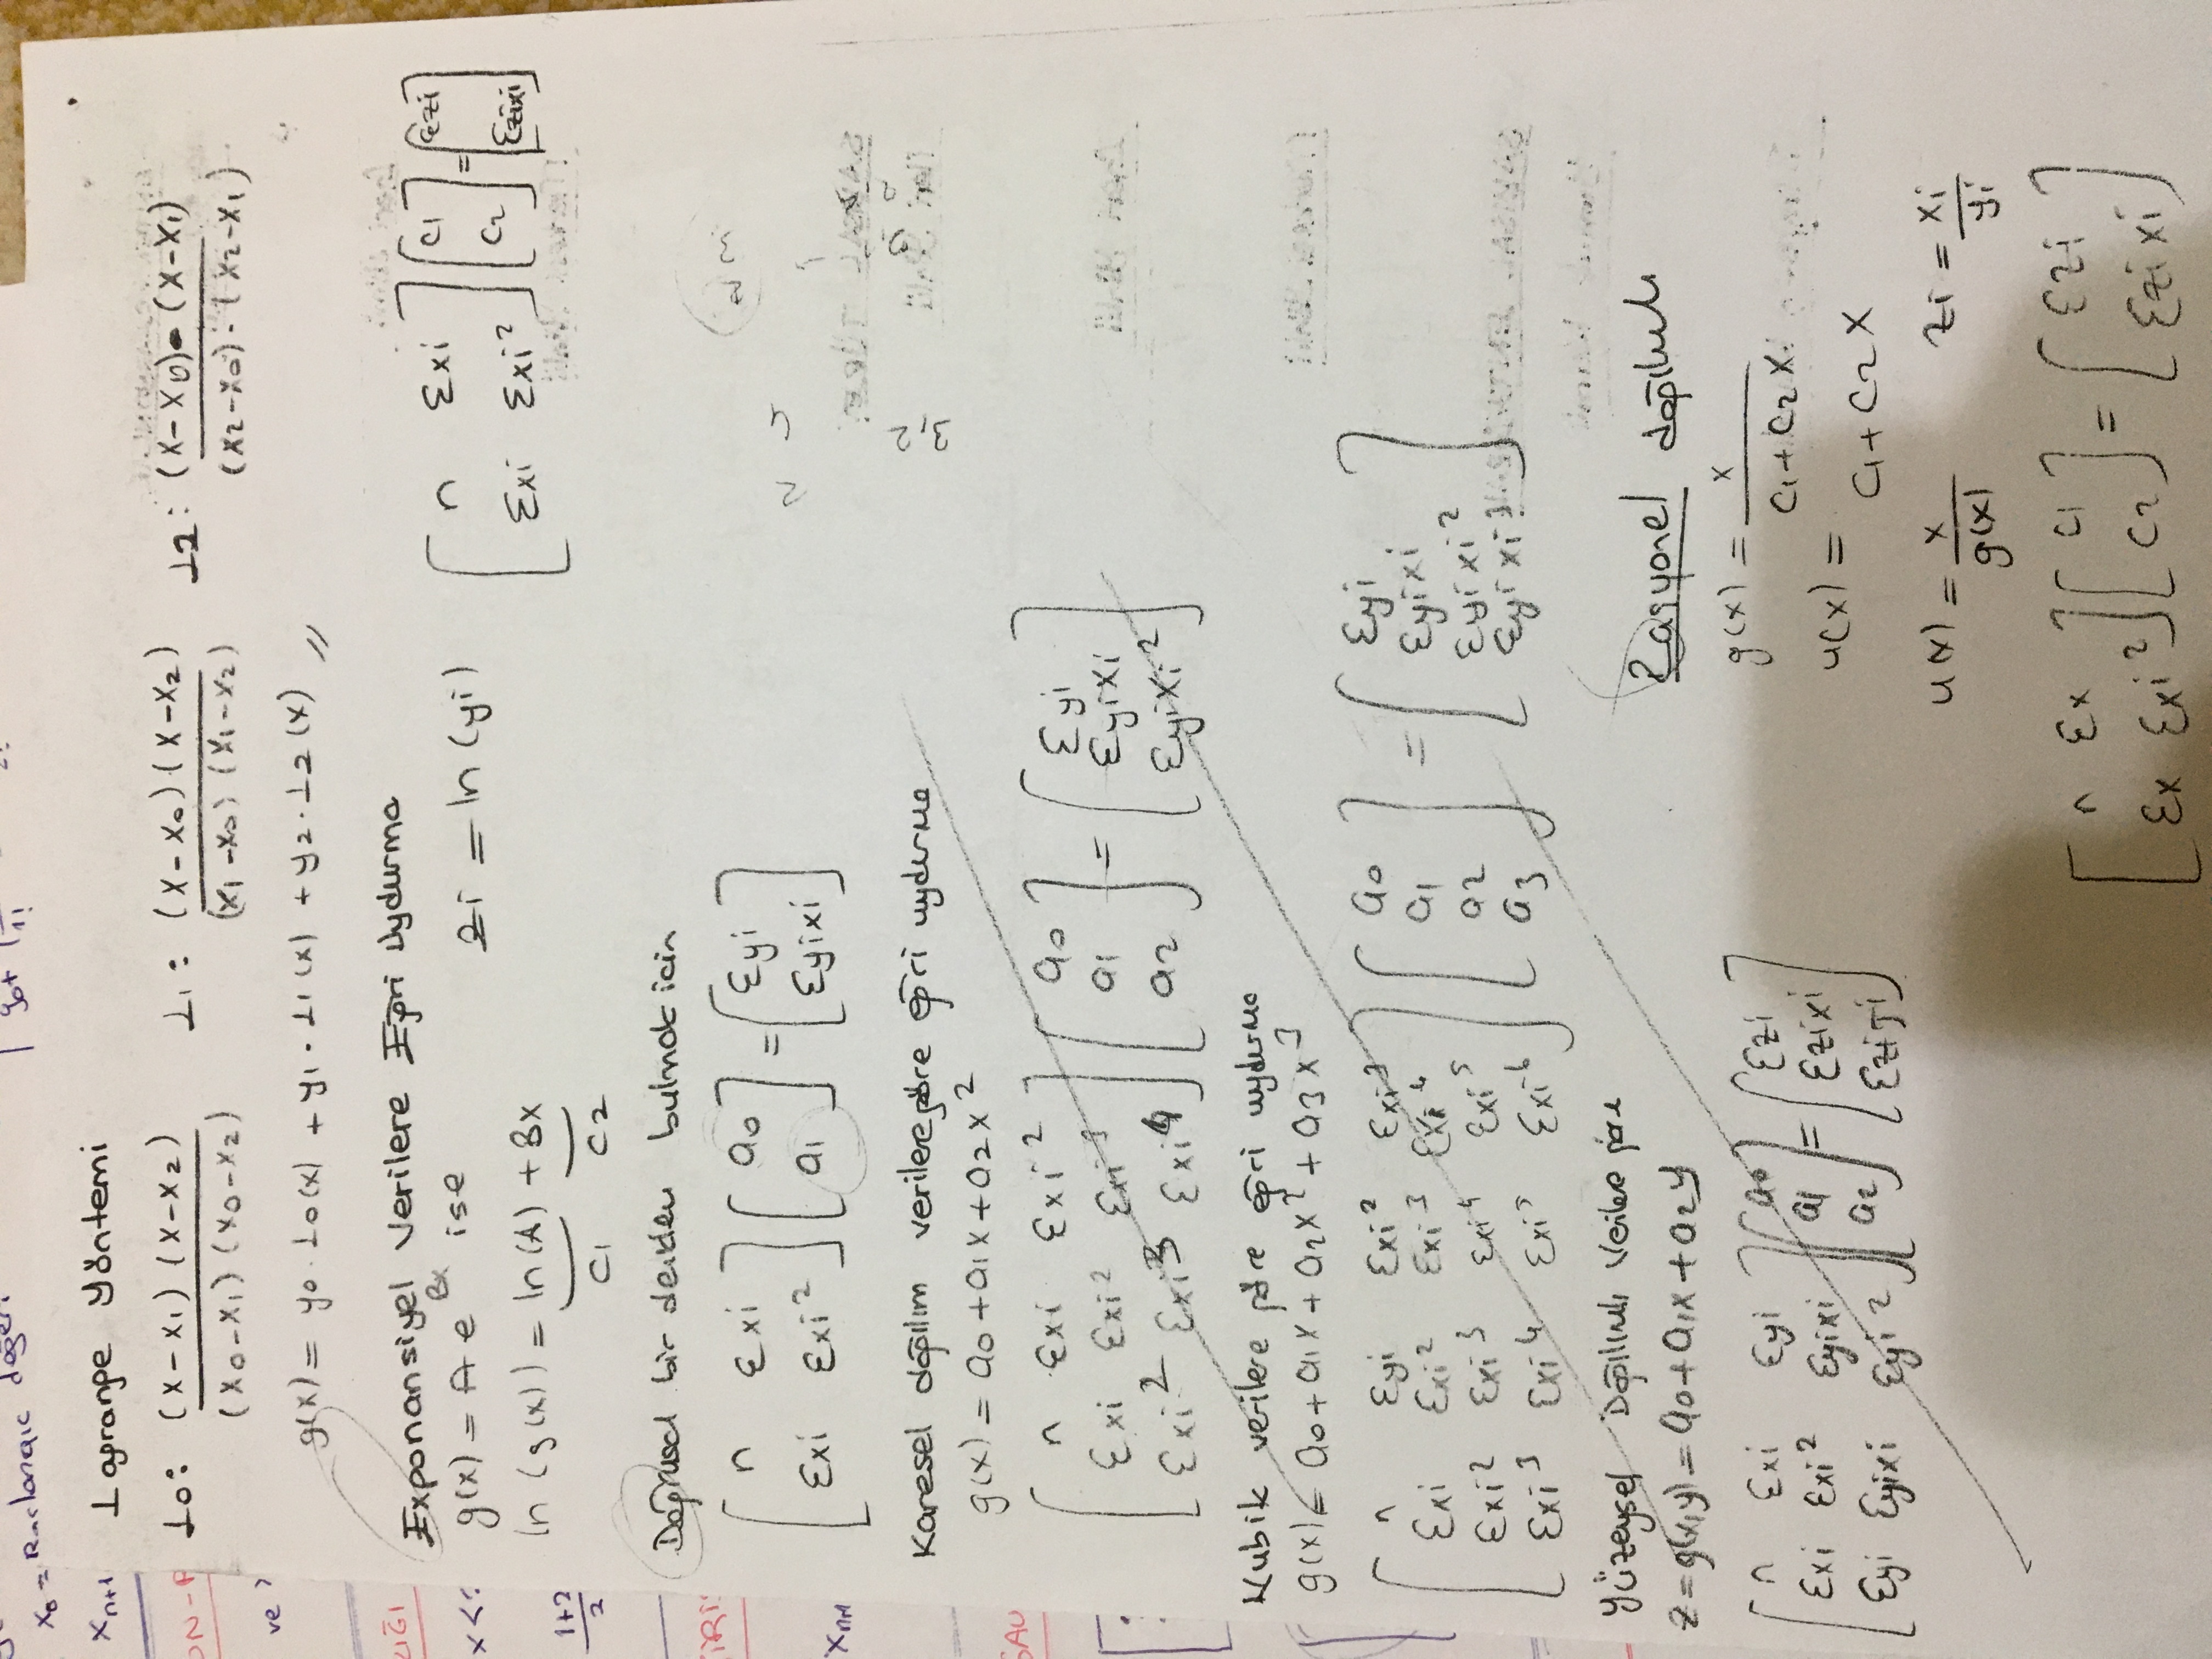 x₀ = Başlangıç değeri
y₀+
1!
xₙ₊₁
ON-R
ve
x<
1+2
2
Lagrange Yöntemi
L0: (x-x₁)(x-x₂) / (x₀-x₁)(x₀-x₂)    L₁: (x-x₀)(x-x₂) / (x₁-x₀)(x₁-x₂)    L2: (x-x₀)·(x-x₁) / (x₂-x₀)·(x₂-x₁)
g(x) = y₀·L₀(x) + y₁·L₁(x) + y₂·L₂(x) //
Exponansiyel Verilere Eğri Uydurma
g(x) = A e^Bx ise    zi = ln(yi)    [n Σxi; Σxi Σxi²] [c₁; c₂] = [Σzi; Σzixi]
ln(g(x)) = ln(A) + Bx
c₁    c₂
Doğrusal bir denklem bulmak için
[n Σxi; Σxi Σxi²] [a₀; a₁] = [Σyi; Σyixi]
Karesel dağılım verilere göre eğri uydurma
g(x) = a₀+a₁x+a₂x²
[n Σxi Σxi²; Σxi Σxi² Σxi³; Σxi² Σxi³ Σxi⁴] [a₀; a₁; a₂] = [Σyi; Σyixi; Σyixi²]
Kubik verilere göre eğri uydurma
g(x) = a₀+a₁x+a₂x²+a₃x³
[n Σyi Σxi² Σxi³; Σxi Σxi² Σxi³ Σxi⁴; Σxi² Σxi³ Σxi⁴ Σxi⁵; Σxi³ Σxi⁴ Σxi⁵ Σxi⁶] [a₀; a₁; a₂; a₃] = [Σyi; Σyixi; Σyixi²; Σyixi³]
Yüzeysel Dağılımlı Verilere göre
z = g(x,y) = a₀+a₁x+a₂y
[n Σxi Σyi; Σxi Σxi² Σyixi; Σyi Σyixi Σyi²] [a₀; a₁; a₂] = [Σzi; Σzixi; Σziyi]
Rasyonel dağılımlı
g(x) = x / c₁+c₂x
u(x) = c₁+c₂x
u(x) = x / g(x)    zi = xi / yi
[n Σx; Σx Σxi²] [c₁; c₂] = [Σzi; Σzixi]